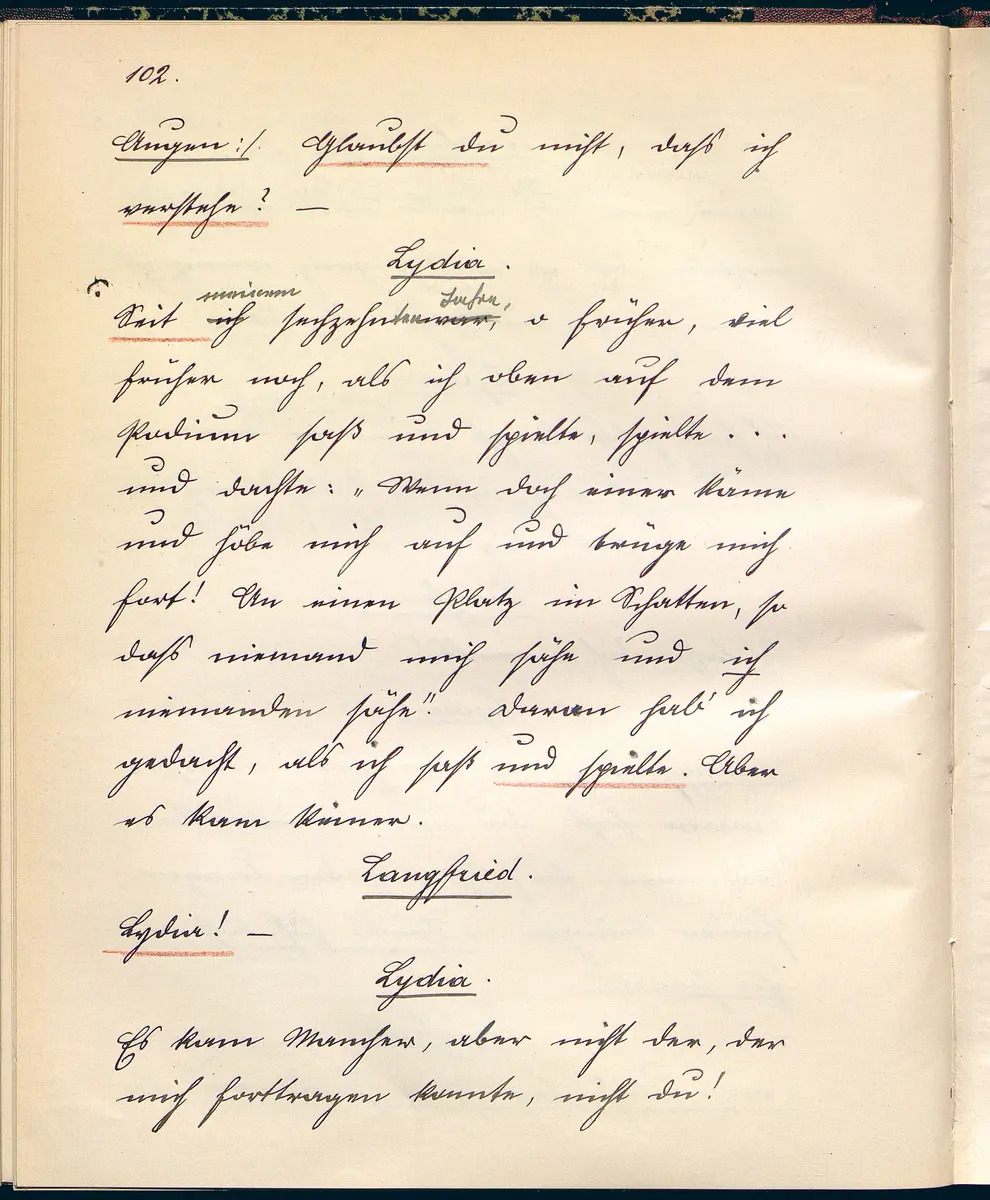 102.
Augen :/. Glaubst du nicht, dass ich
verstehe? —
Lydia.
meinem Jahre,
Seit ich sechzehnten war, o früher, viel
früher noch, als ich oben auf dem
Podium saß und spielte, spielte . . .
und dachte: „Wenn doch einer käme
und höbe mich auf und trüge mich
fort! An einen Platz im Schatten, so
dass niemand mich sähe und ich
niemanden sähe". Daran hab' ich
gedacht, als ich saß und spielte. Aber
es kam keiner.
Langfried.
Lydia! —
Lydia.
Es kam Mancher, aber nicht der, der
mich forttragen konnte, nicht du!